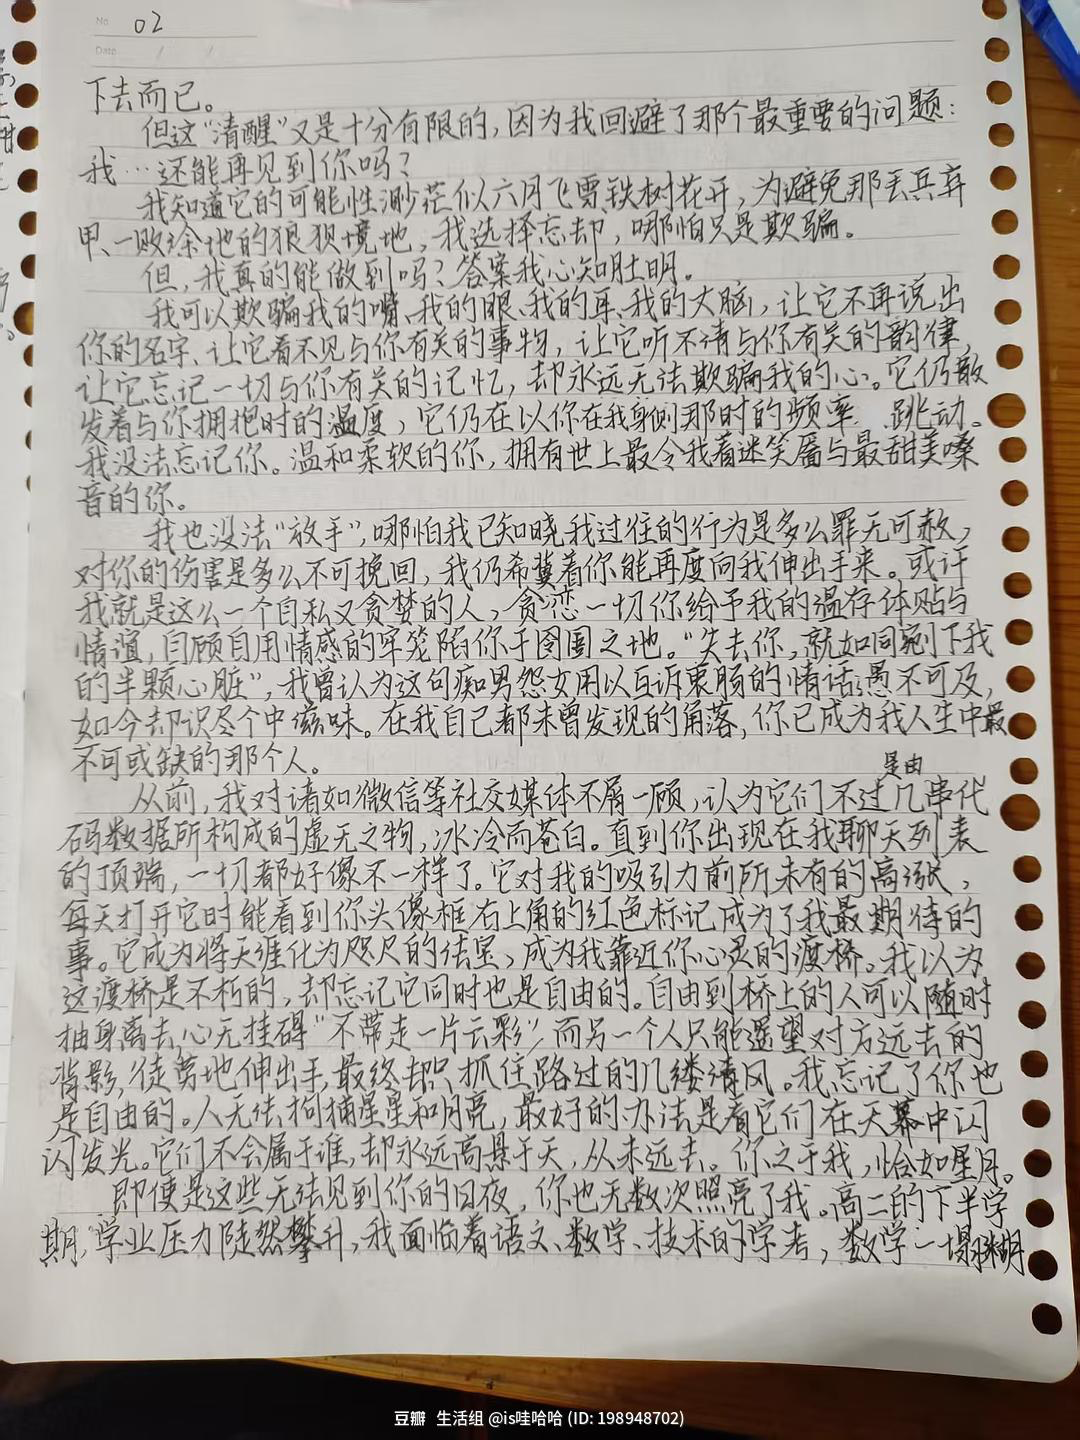 No. 02
Date
下去而已。
但这“清醒”又是十分有限的，因为我回避了那个最重要的问题：
我…还能再见到你吗？
我知道它的可能性渺茫似六月飞雪铁树花开，为避免那丢兵弃
甲、一败涂地的狼狈境地，我选择忘却，哪怕只是欺骗。
但，我真的能做到吗？答案我心知肚明。
我可以欺骗我的嘴、我的眼、我的耳、我的大脑，让它不再说出
你的名字、让它看不见与你有关的事物，让它听不清与你有关的韵律，
让它忘记一切与你有关的记忆，却永远无法欺骗我的心。它仍散
发着与你拥抱时的温度，它仍在以你在我身侧那时的频率 跳动。
我没法忘记你。温和柔软的你，拥有世上最令我着迷笑靥与最甜美嗓
音的你。
我也没法“放手”，哪怕我已知晓我过往的行为是多么罪无可赦，
对你的伤害是多么不可挽回，我仍希冀着你能再度向我伸出手来。或许
我就是这么一个自私又贪婪的人，贪恋一切你给予我的温存体贴与
情谊，自顾自用情感的牢笼陷你于囹圄之地。“失去你，就如同剜下我
的半颗心脏”，我曾认为这句痴男怨女用以互诉衷肠的情话愚不可及，
如今却识尽个中滋味。在我自己都未曾发现的角落，你已成为我人生中最
不可或缺的那个人。
从前，我对诸如微信等社交媒体不屑一顾，认为它们不过是由几串代
码数据所构成的虚无之物，冰冷而苍白。直到你出现在我聊天列表
的顶端，一切都好像不一样了。它对我的吸引力前所未有的高涨，
每天打开它时能看到你头像框右上角的红色标记成为了我最期待的
事。它成为将天涯化为咫尺的法宝，成为我靠近你心灵的渡桥。我以为
这渡桥是不朽的，却忘记它同时也是自由的。自由到桥上的人可以随时
抽身离去，心无挂碍“不带走一片云彩”，而另一个人只能遥望对方远去的
背影，徒劳地伸出手，最终却只抓住路过的几缕清风。我忘记了你也
是自由的。人无法拘捕星星和月亮，最好的办法是看它们在天幕中闪
闪发光。它们不会属于谁，却永远高悬于天，从未远去。你之于我，恰如星月。
即使是这些无法见到你的日夜，你也无数次照亮了我。高二的下半学
期，学业压力陡然攀升，我面临着语文、数学、技术的学考，数学一塌糊
豆瓣 生活组 @is哇哈哈 (ID: 198948702)